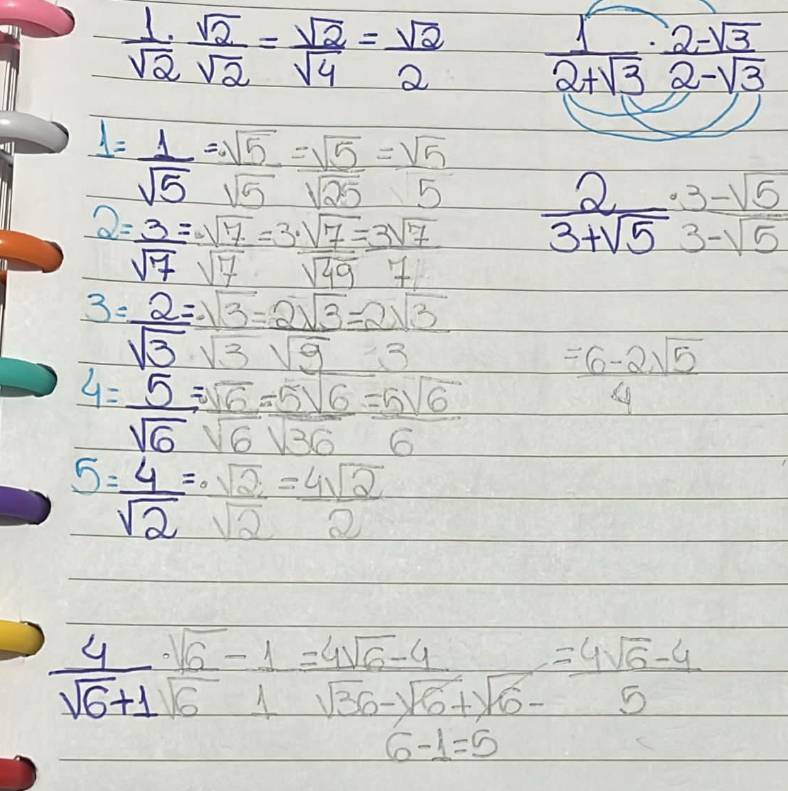 1/√2 · √2/√2 = √2/√4 = √2/2
1/(2+√3) · (2-√3)/(2-√3)
1= 1/√5 =· √5/√5 = √5/√25 = √5/5
2/(3+√5) · (3-√5)/(3-√5)
2= 3/√7 =· √7/√7 = 3·√7/√49 = 3√7/7
3= 2/√3 =· √3/√3 = 2√3/√9 = 2√3/3
= (6-2√5)/4
4= 5/√6 =· √6/√6 = 5√6/√36 = 5√6/6
5= 4/√2 =· √2/√2 = 4√2/2
4/(√6+1) · (√6-1)/(√6 1) = (4√6-4)/(√36-√6+√6-) = (4√6-4)/5
6-1=5